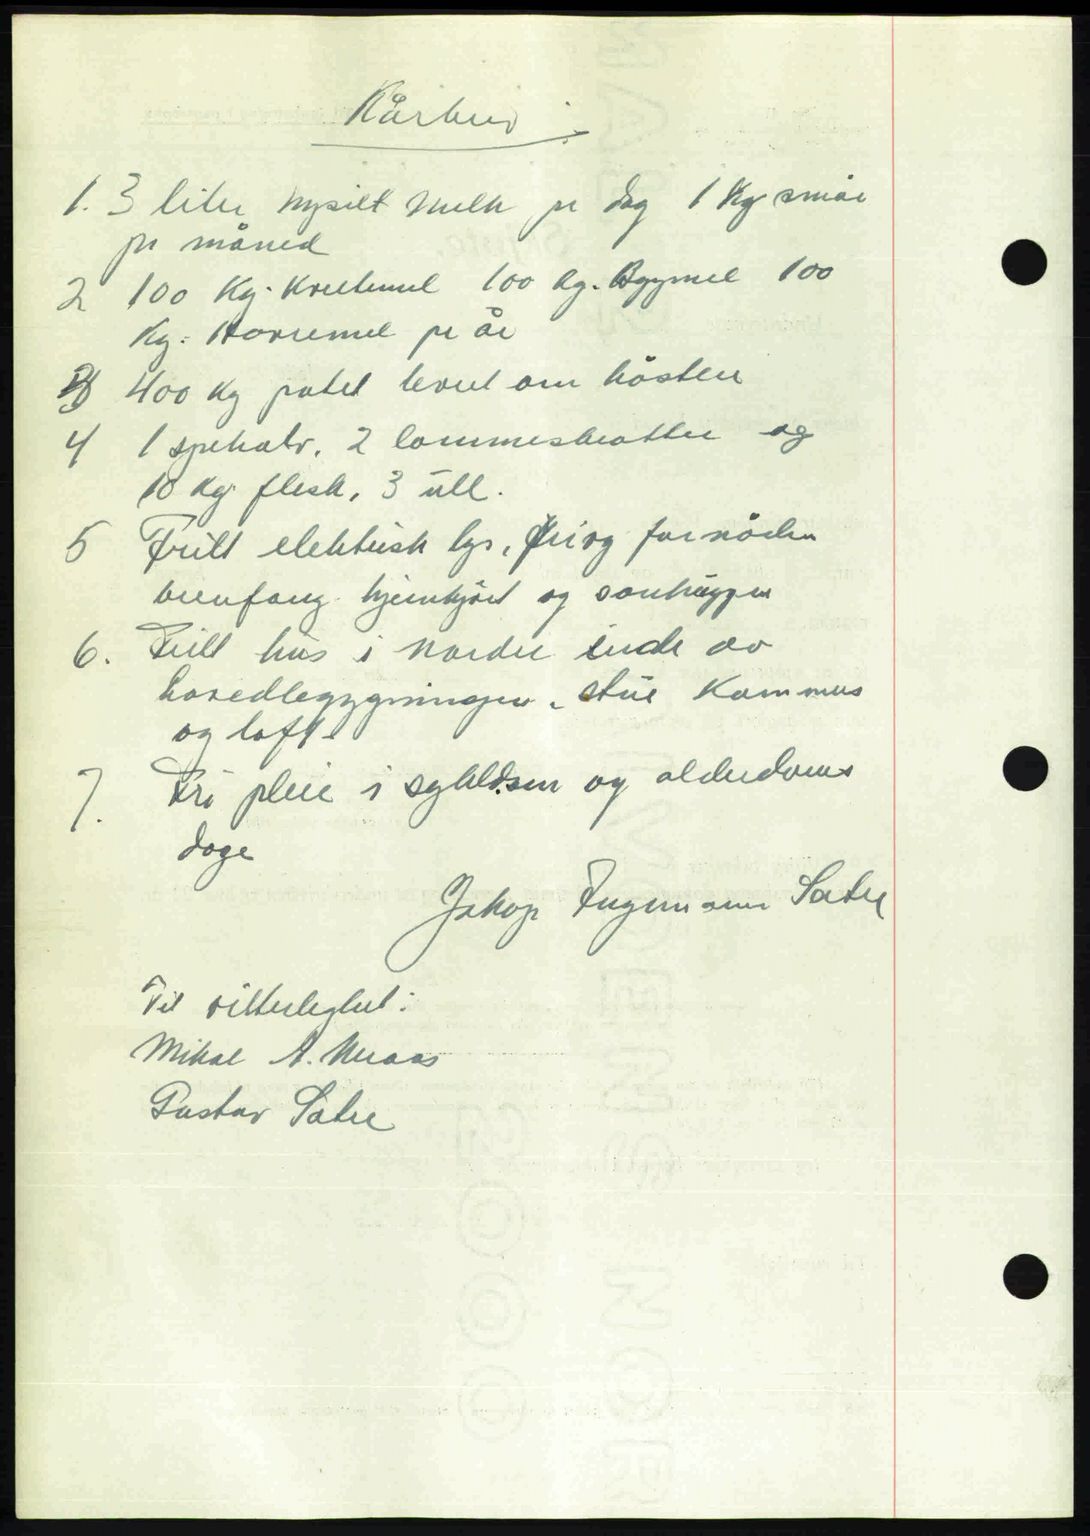 Kårbrev
1. 3 liter nysilt melk pr dag 1 Kg smør
pr måned
2 100 Kg. Kveitemel 100 kg. Bygmel 100
Kg. Havremel pr år
3 400 Kg potet levert om hösten
4 1 spekalv. 2 lammeskrotter og
10 Kg flesk. 3 ull.
5 Fritt elektrisk lys, fri og fornöden
brenfang hjemkjört og
6. Fritt hus i nordre ende av
hovedbygygningen. stue Kammers
og loft.
7. Fri pleie i og alderdoms
dage
Jakop Ingemann Sætre
Til vitterlighet:
Mikal A.
Gustav Sætre